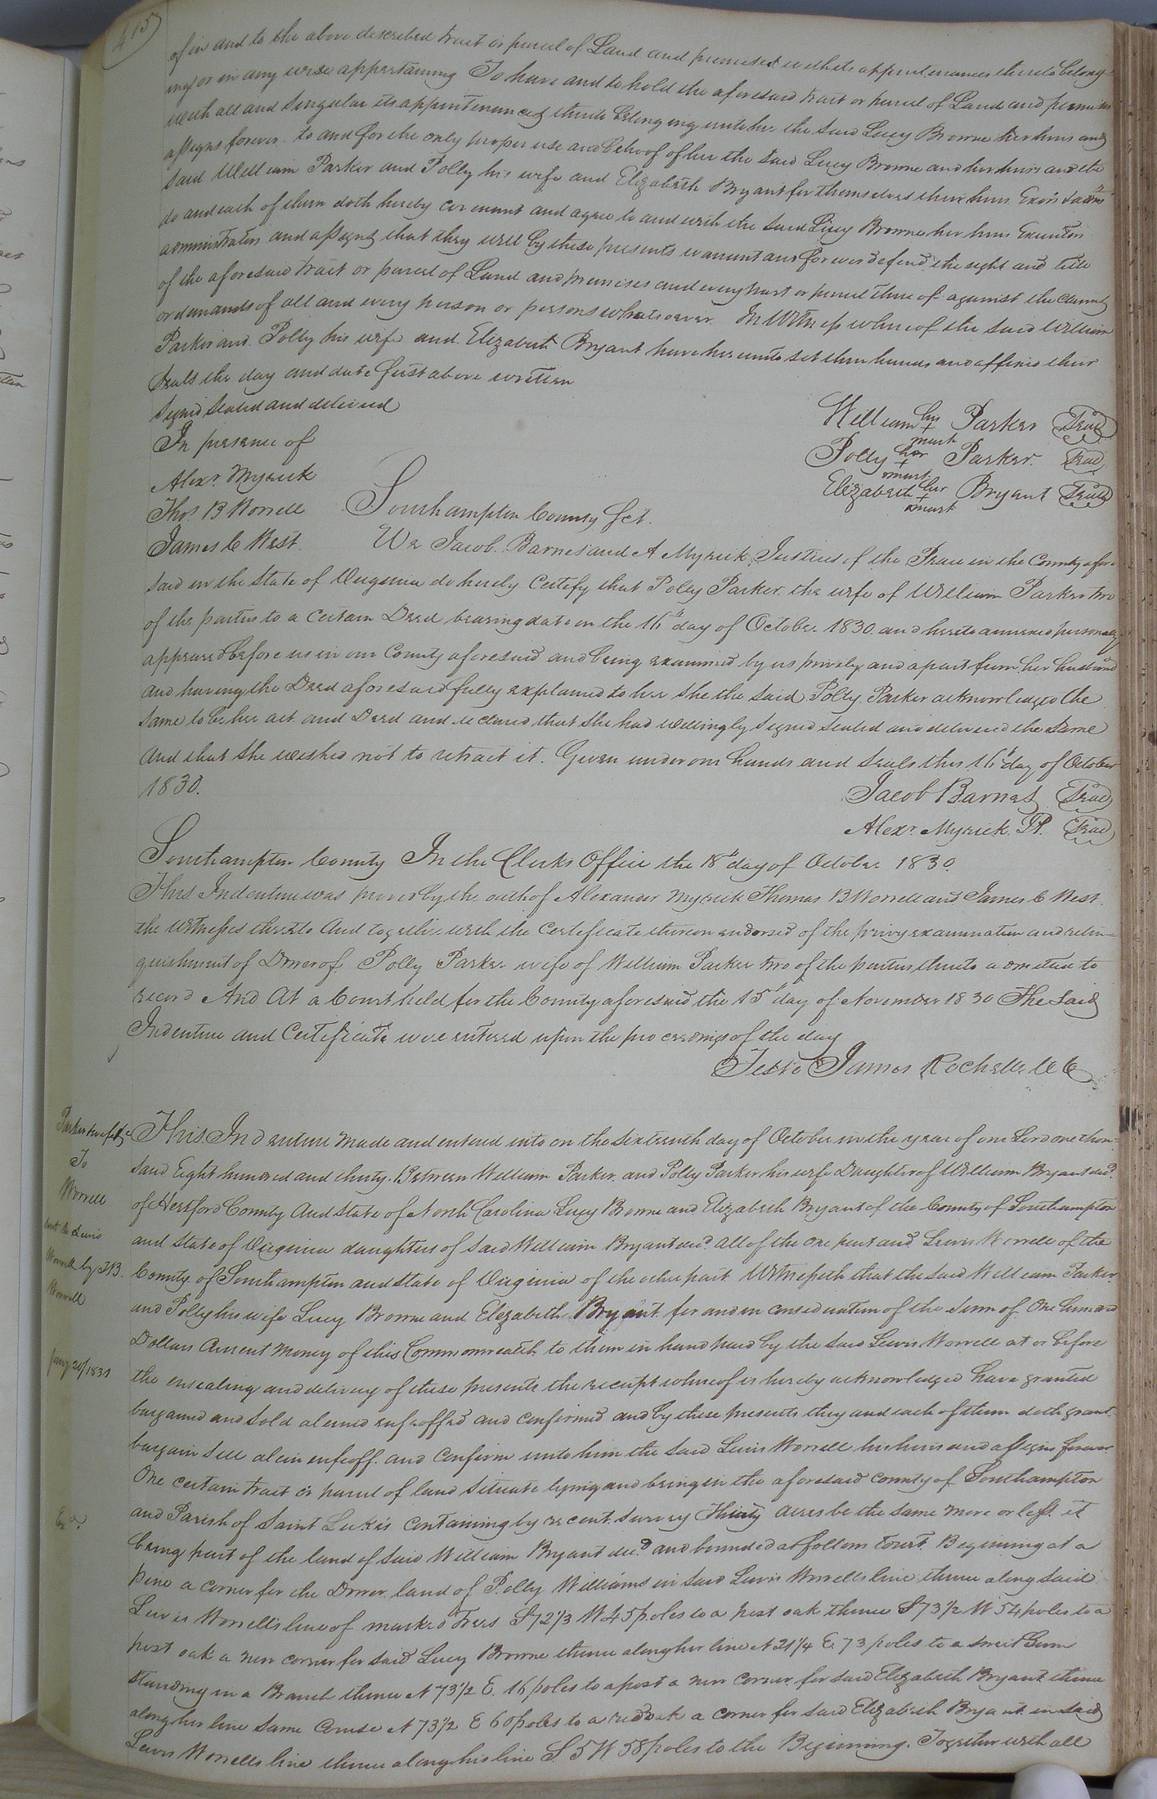 415
of in and to the above described tract or parcel of Land and premises with its appurtenances thereto belong
ing or in any wise appertaining To have and to hold the aforesaid tract or parcel of Land and premises
with all and singular its appurtenances thereto belonging unto her the said Lucy Browne her heirs and
assigns forever to and for the only proper use and behoof of her the said Lucy Browne and her heirs and the
said William Parker and Polly his wife and Elizabeth Bryant for themselves their heirs Exors &
do and each of them doth hereby covenant and agree to and with the said Lucy Browne her heirs Executors
administrators and assigns that they will by these presents warrant and forever defend the right and title
of the aforesaid tract or parcel of Land and premises and every part or parcel thereof against the claims
or demands of all and every person or persons whatsoever. In Witness whereof the said William
Parker and Polly his wife and Elizabeth Bryant have hereunto set their hands and affixed their
Seals the day and date first above written
Signd Sealed and delivered
In presence of
Alexr. Myrick
Thos B Worrell
James C West
William his + mark Parker (Seal)
Polly her + mark Parker (Seal)
Elizabeth her + mark Bryant (Seal)
Southampton County Sct.
We Jacob Barnes and A Myrick Justices of the Peace in the County afore
said in the State of Virginia do hereby Certify that Polly Parker the wife of William Parker two
of the parties to a certain Deed bearing date on the 16th day of October 1830 and hereto annexed personally
appeared before us in our County aforesaid and being examined by us privily and apart from her husband
and having the Deed aforesaid fully explained to her She the said Polly Parker acknowledged the
same to be her act and Deed and declared that she had willingly signed sealed and delivered the same
and that she wished not to retract it. Given under our hands and seals this 16th day of October
1830.
Jacob Barnes (Seal)
Alexr. Myrick JP. (Seal)
Southampton County In the Clerks Office the 18th day of October 1830.
This Indenture was proved by the oath of Alexander Myrick Thomas B Worrell and James C West
the witnesses thereto And together with the Certificate thereon endorsed of the privy examination and relin-
quishment of Dower of Polly Parker wife of William Parker two of the parties thereto admitted to
record And At a Court held for the County aforesaid the 15th day of November 1830 The said
Indenture and Certificate were entered upon the proceedings of the day
Teste James Rochelle CC
Parker &wife &c
To
Worrell
Lewis
Worrell by TB
Worrell
Jany 24/1831
This Indenture made and entered into on the Sixteenth day of October in the year of our Lord one thou-
sand Eight hundred and thirty. Between William Parker and Polly Parker his wife Daughter of William Bryant decd.
of Hertford County and State of North Carolina Lucy Browne and Elizabeth Bryant of the County of Southampton
and State of Virginia daughters of said William Bryant decd. all of the one part and Lewis Worrell of the
County of Southampton and State of Virginia of the other part Witnesseth that the said William Parker
and Polly his wife Lucy Browne and Elizabeth Bryant for and in consideration of the sum of One hundred
Dollars Current money of this Commonwealth to them in hand paid by the said Lewis Worrell at or before
the ensealing and delivery of these presents the receipt whereof is hereby acknowledged have granted
bargained and sold aliened enfeoffed and confirmed and by these presents they and each of them doth grant
bargain sell alein enfeoff and confirm unto him the said Lewis Worrell his heirs and assigns forever
One certain tract or parcel of land situate lying and being in the aforesaid county of Southampton
and Parish of Saint Lukes containing by recent survey Thirty acres be the same more or less it
being part of the land of said William Bryant decd. and bounded as follows towit Beginning at a
pine a corner for the Dower land of Polly Williams in said Lewis Worrells line thence along said
Lewis Worrell's line of marked trees S 72 1/3 W 45 poles to a post oak thence S 73 1/2 W 54 poles to a
post oak a new corner for said Lucy Browne thence along her line N 21 1/4 E 73 poles to a sweet Gum
standing in a Branch thence N 73 1/2 E. 16 poles to a post a new corner for said Elizabeth Bryant thence
along her line same Course N 73 1/2 E 60 poles to a red oak a corner for said Elizabeth Bryant in said
Lewis Worrells line thence along his line S 5 W 58 poles to the Beginning. Together with all